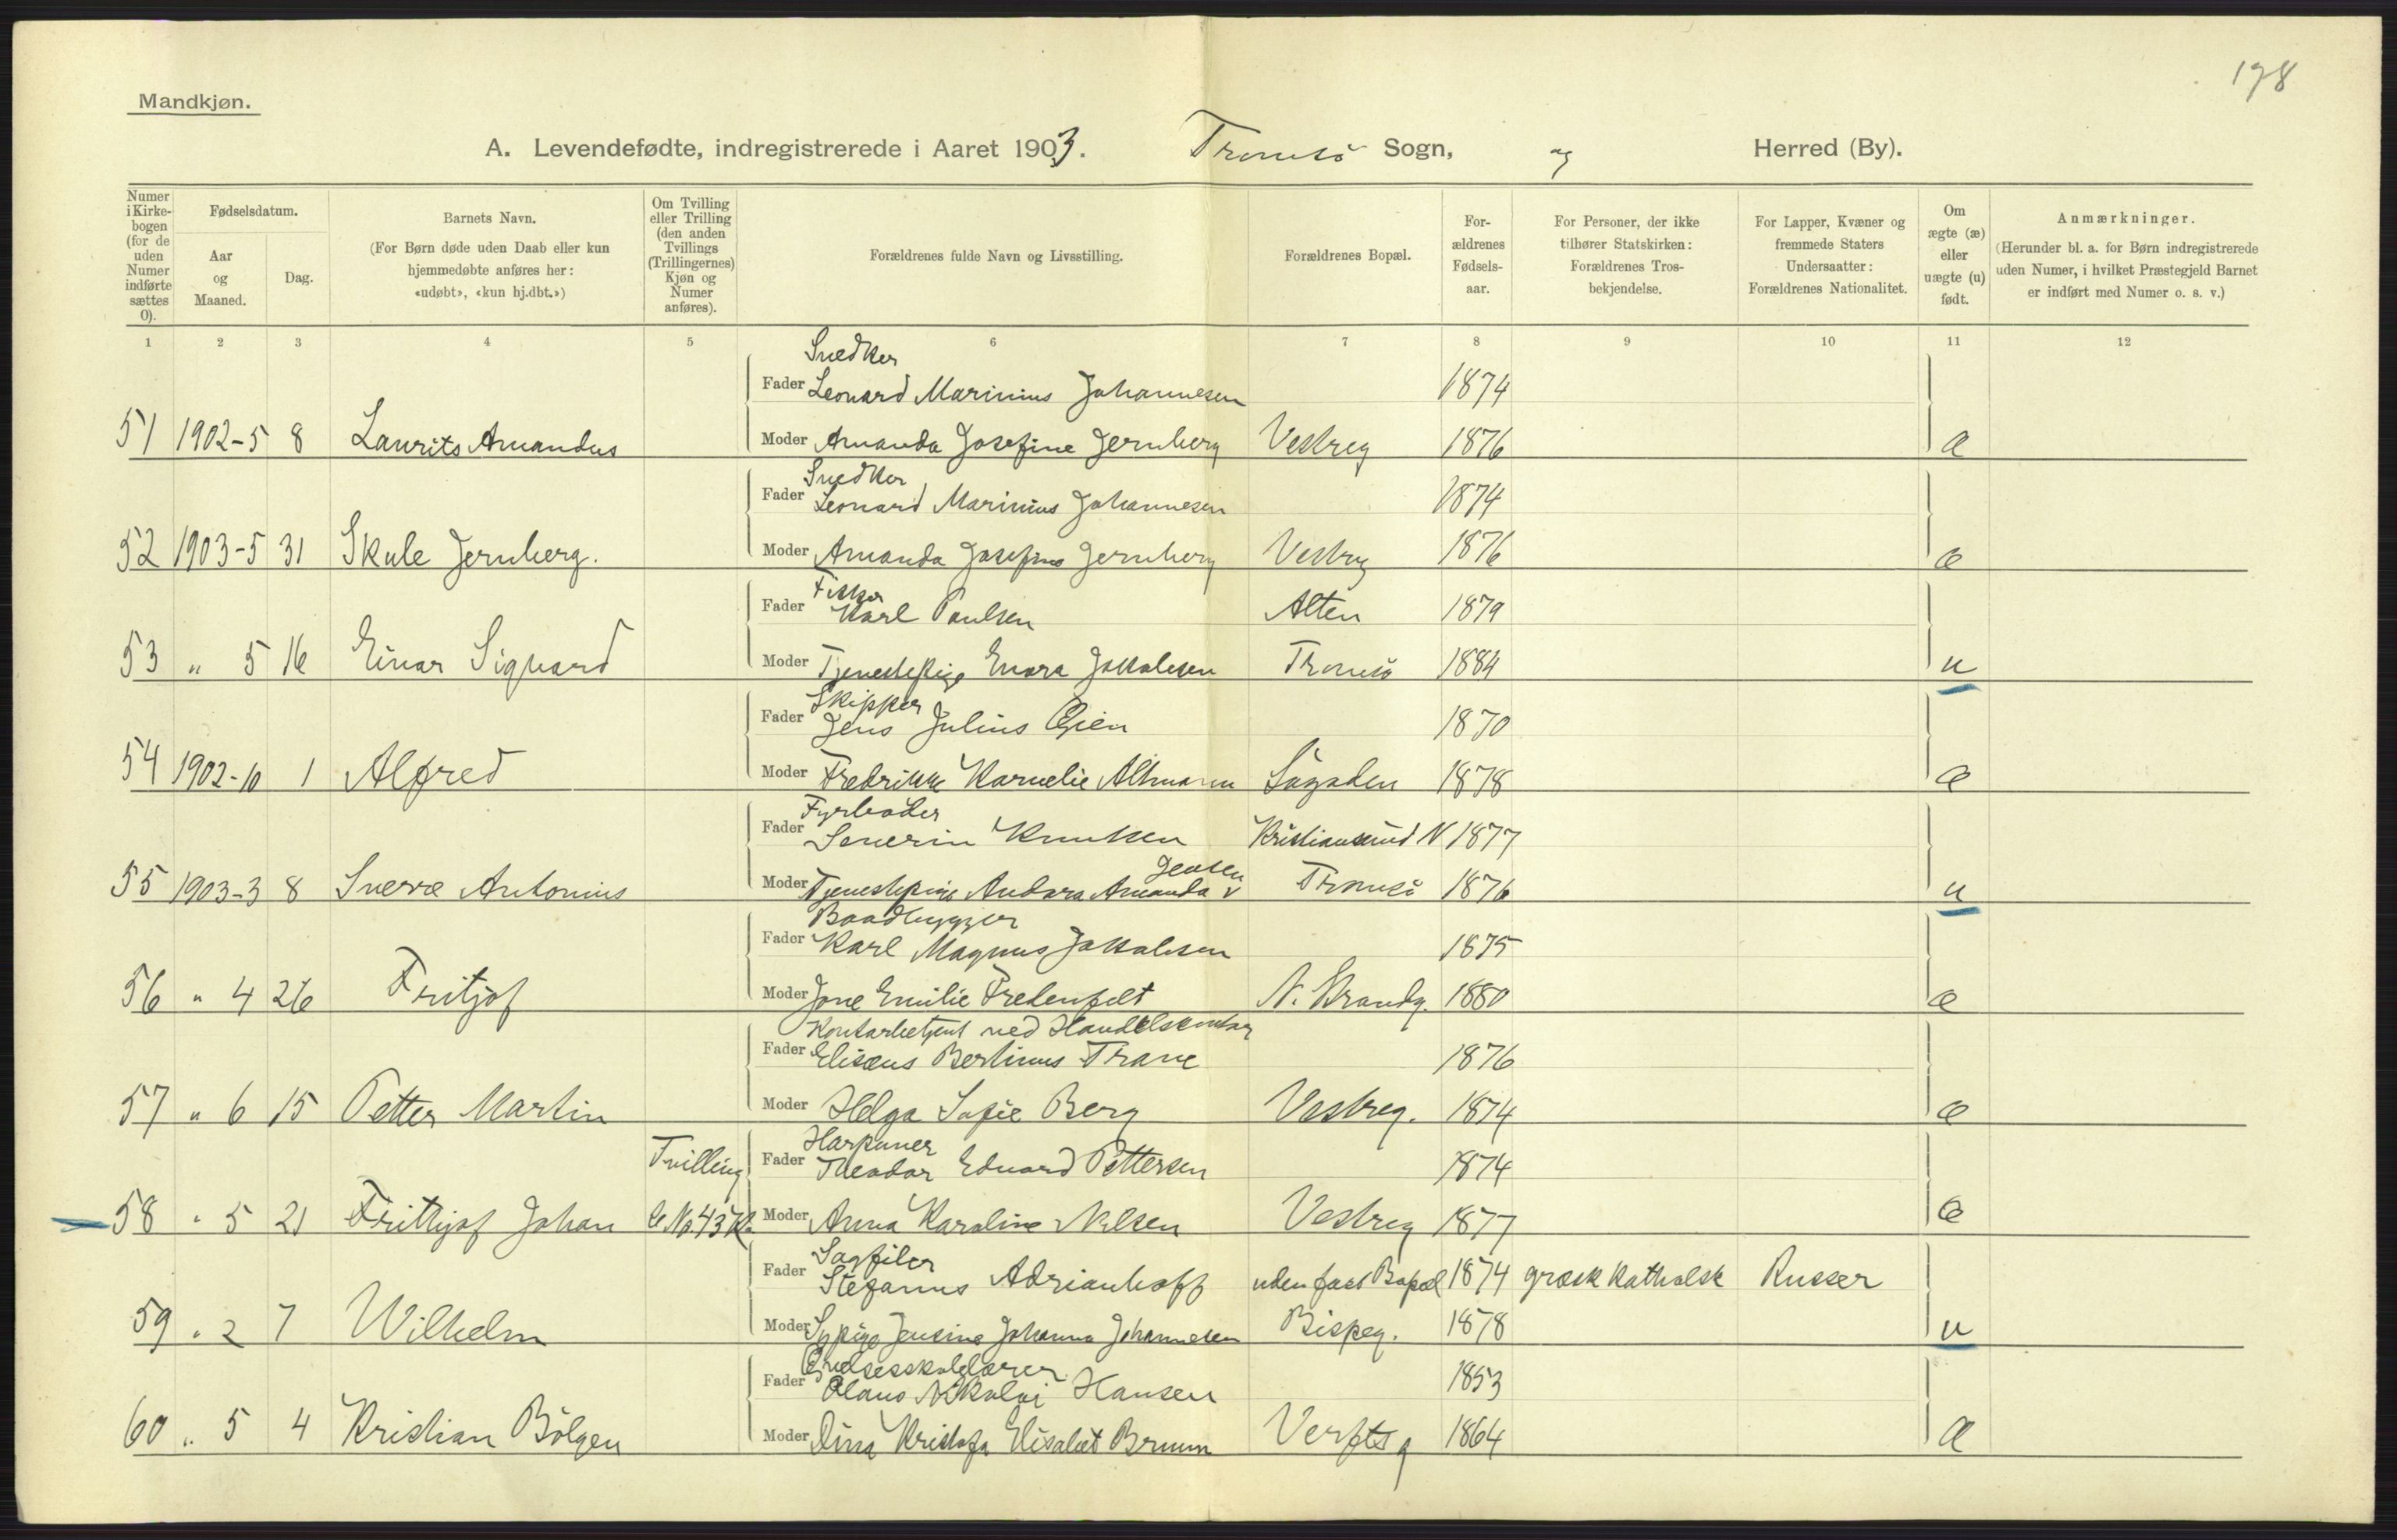 198
Mandkjøn.
A. Levendefødte, indregistrerede i Aaret 1903. Tromsö Sogn, og Herred (By).
Numer i Kirke-bogen (for de uden Numer indførte sættes 0).
Fødselsdatum.
Aar og Maaned.
Dag.
Barnets Navn.
(For Børn døde uden Daab eller kun hjemmedøbte anføres her: «udøbt», «kun hj.dbt.»)
Om Tvilling eller Trilling (den anden Tvillings (Trillingernes) Kjøn og Numer anføres).
Forældrenes fulde Navn og Livsstilling.
Forældrenes Bopæl.
For-ældrenes Fødsels-aar.
For Personer, der ikke tilhører Statskirken: Forældrenes Tros-bekjendelse.
For Lapper, Kvæner og fremmede Staters Undersaatter: Forældrenes Nationalitet.
Om ægte (æ) eller uægte (u) født.
Anmærkninger.
(Herunder bl. a. for Børn indregistrerede uden Numer, i hvilket Præstegjeld Barnet er indført med Numer o. s. v.)
1 2 3 4 5 6 7 8 9 10 11 12
Snedker
Fader Leonard Marinius Johannesen 1874
51 1902-5 8 Laurits Amandus Moder Amanda Josefine Jernberg Vestreg 1876 æ
Snedker
Fader Leonard Marinius Johannesen 1874
52 1903-5 31 Skule Jernberg. Moder Amanda Josefine Jernberg Vestreg 1876 æ
Fisker
Fader Karl Paulsen Alten 1879
53 " 5 16 Einar Sigvard Moder Tjenestepige Enora Jakobsen Tromsö 1884 u
Skipper
Fader Jens Julius Öien 1870
54 1902-10 1 Alfred Moder Fredrikke Kornelie Altmann Sögaden 1878 æ
Fyrböder
Fader Severin Knutsen Kristiansund N 1877
Jensen
55 1903-3 8 Sverre Antonius Moder Tjenestepige Andora Amanda v Tromsö 1876 u
Baadbygger
Fader Karl Magnus Jakobsen 1875
56 " 4 26 Fritjof Moder Jone Emilie Fredenfelt N. Strandg. 1880 æ
Kontorbetjent ved Handelskontor
Fader Elisæus Bertinus Trane 1876
57 " 6 15 Petter Martin Moder Helga Sofie Berg Vestreg. 1874 æ
Harpuner
Tvilling Fader Theodor Edvard Pettersen 1874
58 " 5 21 Frithjof Johan No 43 K. Moder Anna Karoline Nilsen Vestreg 1877 æ
Sagfiler
Fader Stefanus Adrianhoff uden fast Bopæl 1874 græsk katholsk Russer
59 " 2 7 Wilhelm Moder Sypige Jensine Johanna Johannesen Bispeg. 1878 u
Övelsesskolelærer
Fader Olaus Nikolai Hansen 1853
60 " 5 4 Kristian Bölgen Moder Dina Kristofa Elisabet Bruun Verftsg 1864 æ